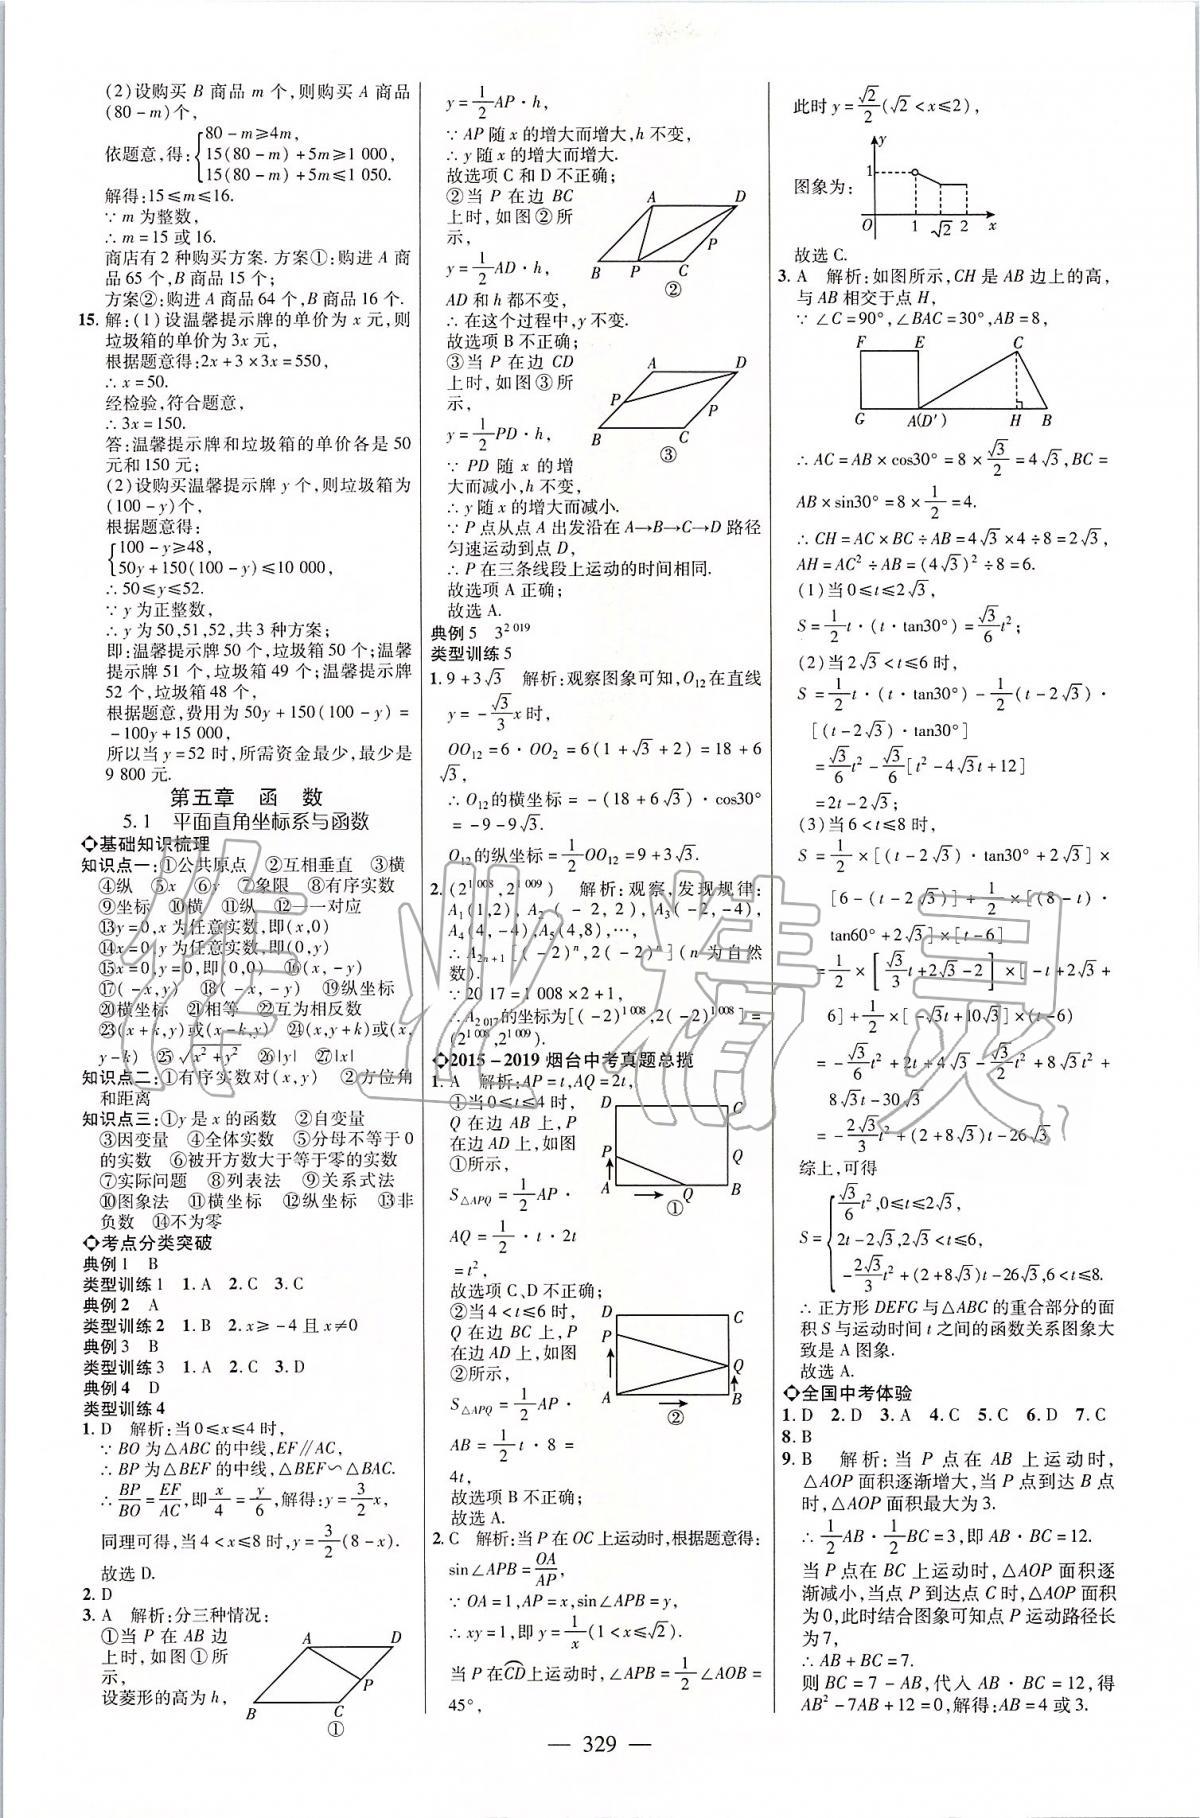 (2)设购买 B 商品 m 个,则购买 A 商品
(80-m)个,
依题意,得:{80-m≥4m,
15(80-m)+5m≥1 000,
15(80-m)+5m≤1 050.
解得:15≤m≤16.
∵m 为整数,
∴m=15 或 16.
商店有 2 种购买方案. 方案①:购进 A 商
品 65 个,B 商品 15 个;
方案②:购进 A 商品 64 个,B 商品 16 个.
15. 解:(1)设温馨提示牌的单价为 x 元,则
垃圾箱的单价为 3x 元,
根据题意得:2x+3×3x=550,
∴x=50.
经检验,符合题意,
∴3x=150.
答:温馨提示牌和垃圾箱的单价各是 50
元和 150 元;
(2)设购买温馨提示牌 y 个,则垃圾箱为
(100-y)个,
根据题意得:
{100-y≥48,
50y+150(100-y)≤10 000,
∴50≤y≤52.
∵y 为正整数,
∴y 为 50,51,52,共 3 种方案;
即:温馨提示牌 50 个,垃圾箱 50 个;温馨
提示牌 51 个,垃圾箱 49 个;温馨提示牌
52 个,垃圾箱 48 个,
根据题意,费用为 50y+150(100-y)=
-100y+15 000,
所以当 y=52 时,所需资金最少,最少是
9 800 元.
第五章 函 数
5.1 平面直角坐标系与函数
◇基础知识梳理
知识点一:①公共原点 ②互相垂直 ③横
④纵 ⑤x ⑥y ⑦象限 ⑧有序实数
⑨坐标 ⑩横 ⑪纵 ⑫一一对应
⑬y=0,x 为任意实数,即(x,0)
⑭x=0,y 为任意实数,即(0,y)
⑮x=0,y=0,即(0,0) ⑯(x,-y)
⑰(-x,y) ⑱(-x,-y) ⑲纵坐标
⑳横坐标 ㉑相等 ㉒互为相反数
㉓(x+k,y)或(x-k,y) ㉔(x,y+k)或(x,
y-k) ㉕√(x²+y²) ㉖|y| ㉗|x|
知识点二:①有序实数对(x,y) ②方位角
和距离
知识点三:①y 是 x 的函数 ②自变量
③因变量 ④全体实数 ⑤分母不等于 0
的实数 ⑥被开方数大于等于零的实数
⑦实际问题 ⑧列表法 ⑨关系式法
⑩图象法 ⑪横坐标 ⑫纵坐标 ⑬非
负数 ⑭不为零
◇考点分类突破
典例 1 B
类型训练 1 1. A 2. C 3. C
典例 2 A
类型训练 2 1. B 2. x≥-4 且 x≠0
典例 3 B
类型训练 3 1. A 2. C 3. D
典例 4 D
类型训练 4
1. D 解析:当 0≤x≤4 时,
∵BO 为△ABC 的中线,EF∥AC,
∴BP 为△BEF 的中线,△BEF∽△BAC.
∴BP/BO=EF/AC,即x/4=y/6,解得:y=3/2x,
同理可得,当 4<x≤8 时,y=3/2(8-x).
故选 D.
2. D
3. A 解析:分三种情况:
①当 P 在 AB 边
上时,如图①所
示,
设菱形的高为 h,
A D P B C ①
y=1/2AP·h,
∵AP 随 x 的增大而增大,h 不变,
∴y 随 x 的增大而增大.
故选项 C 和 D 不正确;
②当 P 在边 BC
上时,如图②所
示,
y=1/2AD·h,
A D P B P C ②
AD 和 h 都不变,
∴在这个过程中,y 不变.
故选项 B 不正确;
③当 P 在边 CD
上时,如图③所
示,
y=1/2PD·h,
A D P P B C ③
∵PD 随 x 的增
大而减小,h 不变,
∴y 随 x 的增大而减小.
∵P 点从点 A 出发沿在 A→B→C→D 路径
匀速运动到点 D,
∴P 在三条线段上运动的时间相同.
故选项 A 正确;
故选 A.
典例 5 3^2 019
类型训练 5
1. 9+3√3 解析:观察图象可知,O12在直线
y=-√3/3x 时,
OO12=6·OO2=6(1+√3+2)=18+6
√3,
∴O12的横坐标=-(18+6√3)·cos30°
=-9-9√3,
O12的纵坐标=1/2OO12=9+3√3.
2. (2^1 008,2^1 009) 解析:观察,发现规律:
A1(1,2),A2(-2,2),A3(-2,-4),
A4(4,-4),A5(4,8),…,
∴A2n+1[(-2)^n,2(-2)^n](n 为自然
数).
∵2017=1 008×2+1,
∴A2 017的坐标为[(-2)^1 008,2(-2)^1 008]=
(2^1 008,2^1 009).
◇2015-2019 烟台中考真题总揽
1. A 解析:AP=t,AQ=2t,
①当 0≤t≤4 时,
Q 在边 AB 上,P
在边 AD 上,如图
①所示,
S△APQ=1/2AP·
AQ=1/2·t·2t
=t²,
D C P Q A Q B ①
故选项 C、D 不正确;
②当 4<t≤6 时,
Q 在边 BC 上,P
在边 AD 上,如图
②所示,
S△APQ=1/2AP·
AB=1/2t·8=
4t,
D C P Q A B ②
故选项 B 不正确;
故选 A.
2. C 解析:当 P 在 OC 上运动时,根据题意得:
sin∠APB=OA/AP,
∵OA=1,AP=x,sin∠APB=y,
∴xy=1,即 y=1/x(1<x≤√2).
当 P 在CD上运动时,∠APB=1/2∠AOB=
45°,
此时 y=√2/2(√2<x≤2),
图象为:
y 1 O 1 √2 2 x
故选 C.
3. A 解析:如图所示,CH 是 AB 边上的高,
与 AB 相交于点 H,
∵∠C=90°,∠BAC=30°,AB=8,
F E C
G A(D′) H B
∴AC=AB×cos30°=8×√3/2=4√3,BC=
AB×sin30°=8×1/2=4.
∴CH=AC×BC÷AB=4√3×4÷8=2√3,
AH=AC²÷AB=(4√3)²÷8=6.
(1)当 0≤t≤2√3,
S=1/2t·(t·tan30°)=√3/6t²;
(2)当 2√3<t≤6 时,
S=1/2t·(t·tan30°)-1/2(t-2√3)·
[(t-2√3)·tan30°]
=√3/6t²-√3/6[t²-4√3t+12]
=2t-2√3;
(3)当 6<t≤8 时,
S=1/2×[(t-2√3)·tan30°+2√3]×
[6-(t-2√3)]+1/2×[(8-t)·
tan60°+2√3]×[t-6]
=1/2×[√3/3t+2√3-2]×[-t+2√3+
6]+1/2×[-√3t+10√3]×(t-6)
=-√3/6t²+2t+4√3-√3/2t²+
8√3t-30√3
=-2√3/3t²+(2+8√3)t-26√3
综上,可得
S={√3/6t²,0≤t≤2√3,
2t-2√3,2√3<t≤6,
-2√3/3t²+(2+8√3)t-26√3,6<t≤8.
∴正方形 DEFG 与△ABC 的重合部分的面
积 S 与运动时间 t 之间的函数关系图象大
致是 A 图象.
故选 A.
◇全国中考体验
1. D 2. D 3. A 4. C 5. C 6. D 7. C
8. B
9. B 解析:当 P 点在 AB 上运动时,
△AOP 面积逐渐增大,当 P 点到达 B 点
时,△AOP 面积最大为 3.
∴1/2AB·1/2BC=3,即 AB·BC=12.
当 P 点在 BC 上运动时,△AOP 面积逐
渐减小,当点 P 到达点 C 时,△AOP 面积
为 0,此时结合图象可知点 P 运动路径长
为 7,
∴AB+BC=7.
则 BC=7-AB,代入 AB·BC=12,得
AB²-7AB+12=0,解得:AB=4 或 3.
— 329 —
作业精灵